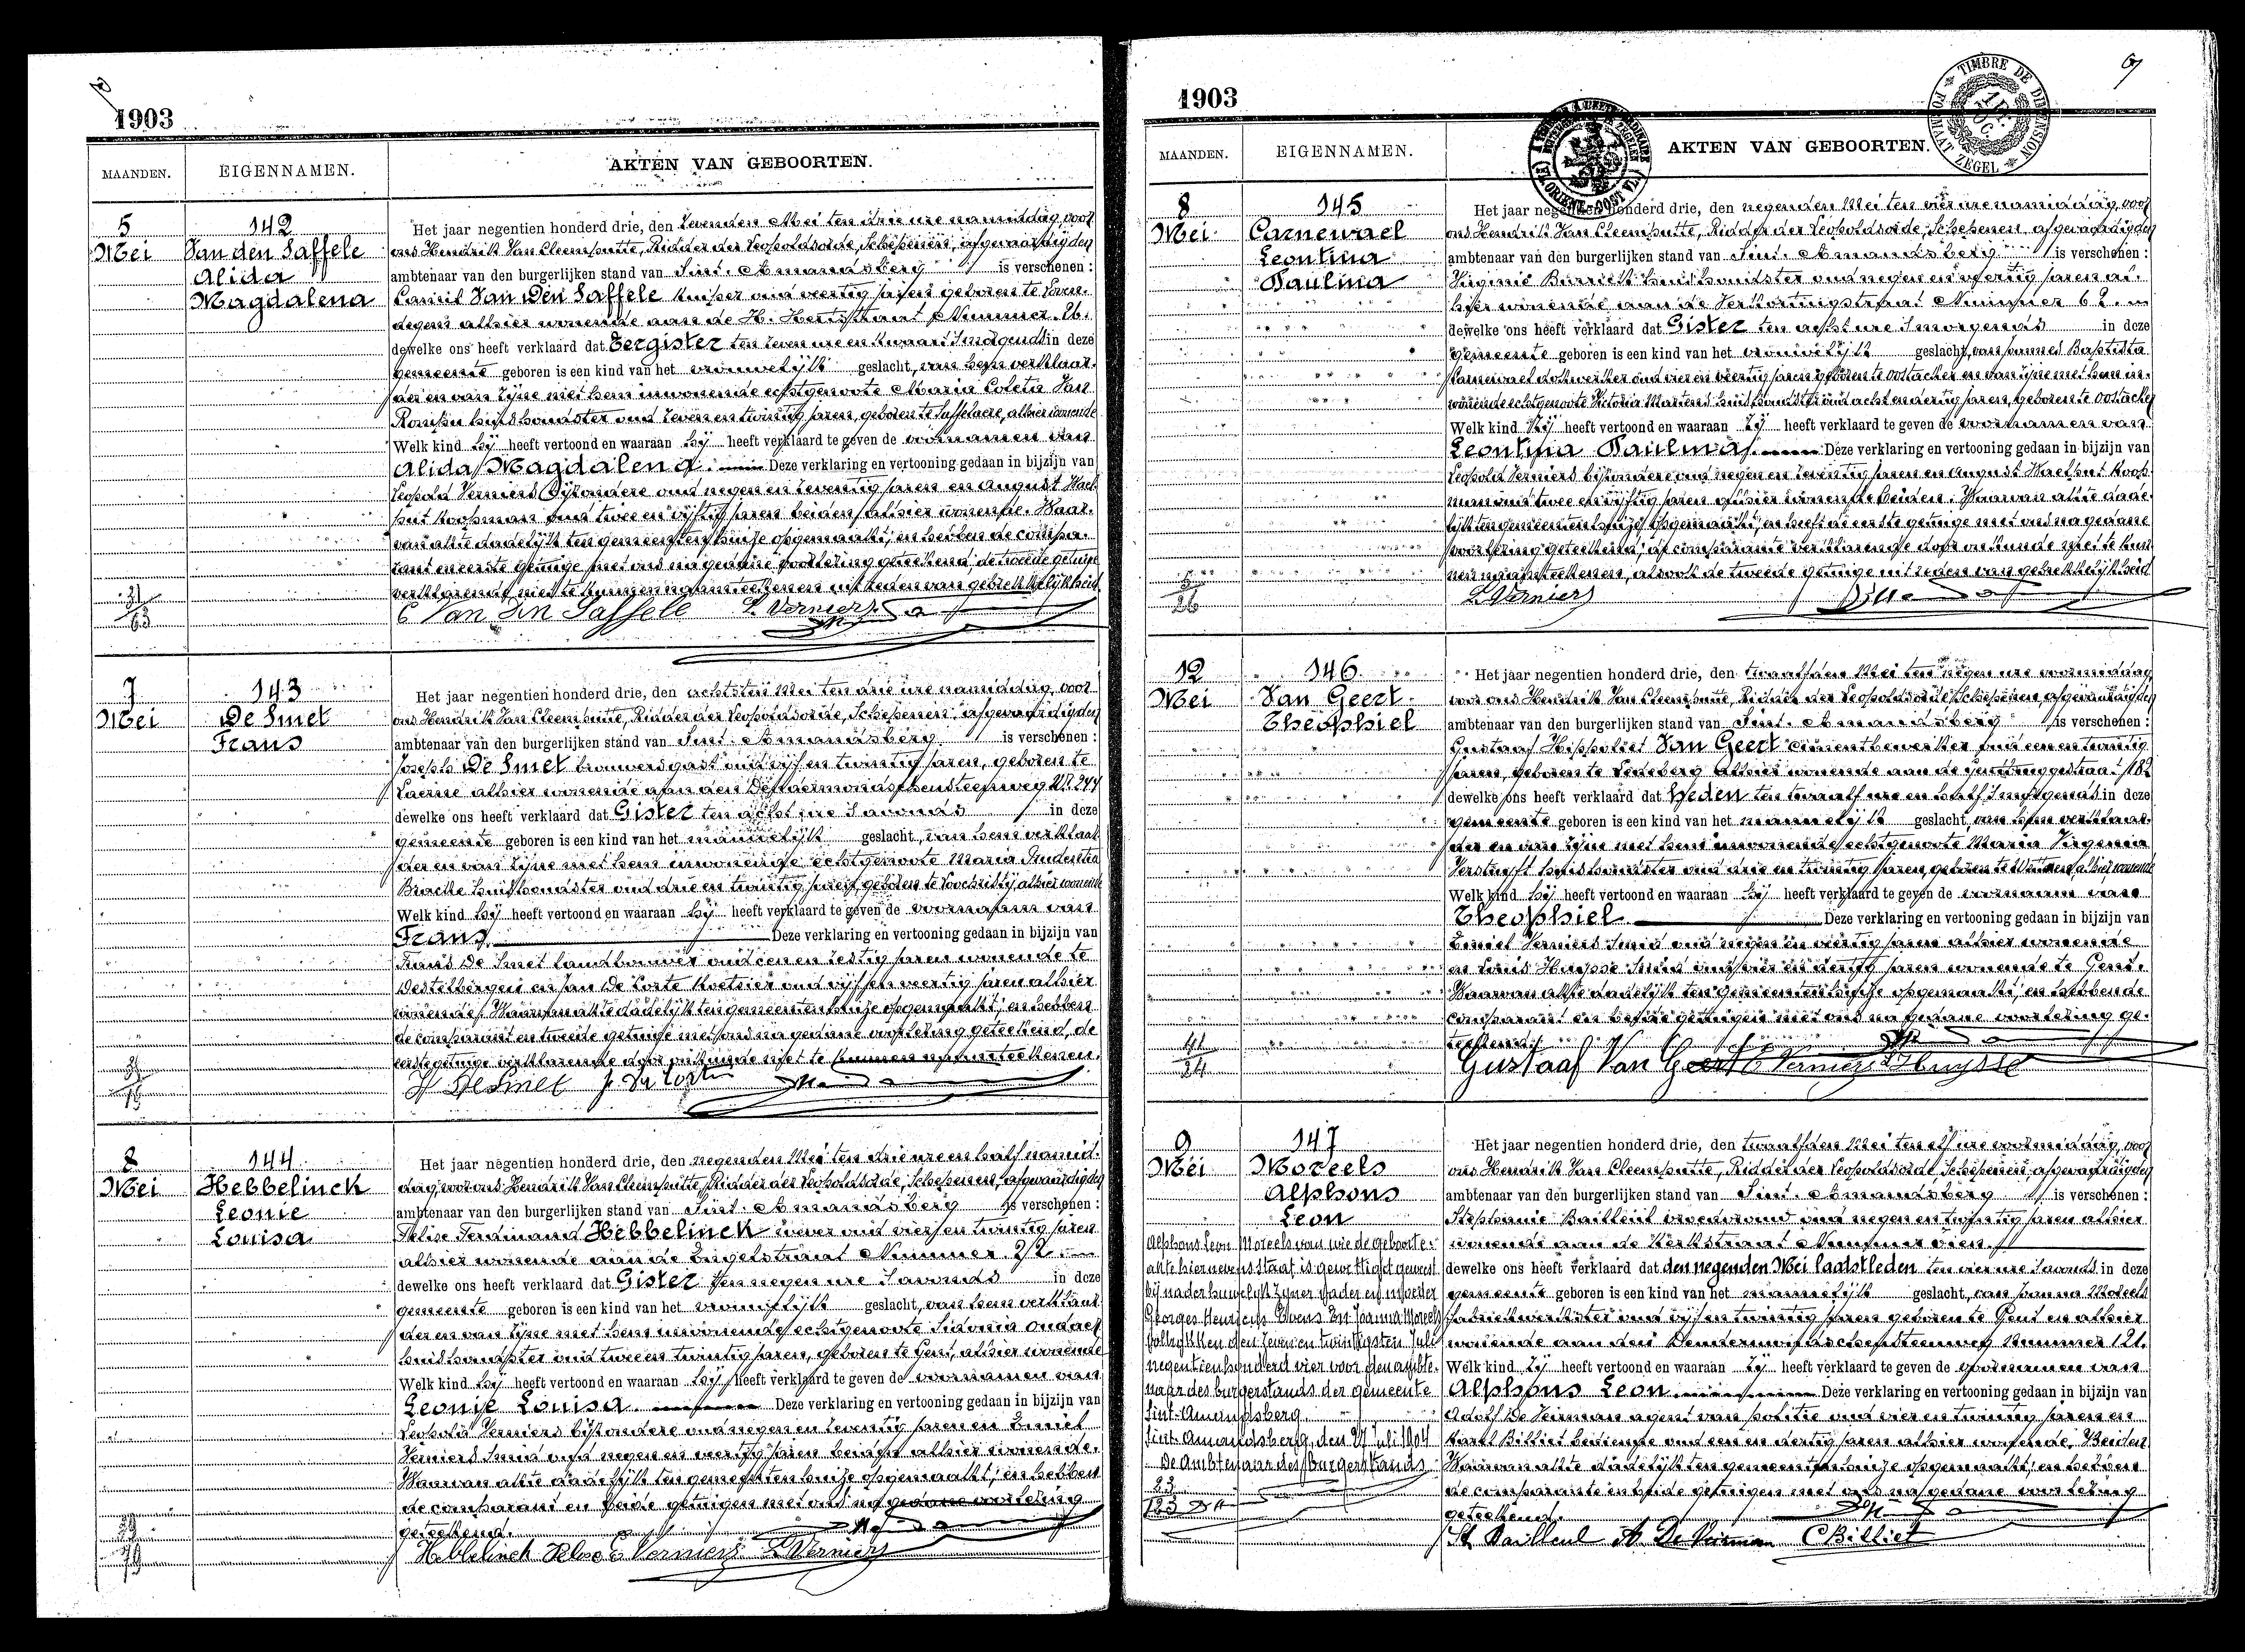 1903
MAANDEN.
EIGENNAMEN.
AKTEN VAN GEBOORTEN.
5
Mei
142
Van den Saffele
Alida
Magdalena
Het jaar negentien honderd drie, den zevenden Mei ten drie ure namiddag, voor
ons Hendrik Van Cleemputte, Ridder der Leopoldsorde, Schepenen, afgevaardigden
ambtenaar van den burgerlijken stand van Sint-Amandsberg is verschenen:
Camiel Van Den Saffele kuiper oud veertig jaren geboren te Ever-
degem alhier wonende aan de H. Hertstraat Nummer 26.
dewelke ons heeft verklaard dat Eergister ten zeven ure en kwaart 's morgends in deze
gemeente geboren is een kind van het vrouwelijk geslacht, van hem verklaar-
der en van zijne met hem inwonende echtgenoote Maria Coleta Van
huishoudster oud zeven en twintig jaren, geboren te Saffelaere, alhier wonende
Welk kind hij heeft vertoond en waaraan hij heeft verklaard te geven de voornamen van
Alida Magdalena. Deze verklaring en vertooning gedaan in bijzijn van
Leopold Verniers bijzondere oud negen en zeventig jaren en August Hael-
put koopman oud twee en vijftig jaren beiden alhier wonende. Waar-
van akte dadelijk ten gemeentenhuize opgemaakt, en hebben de compa-
rant en eerste getuige met ons na gedane voorlezing geteekend, de tweede getuige
verklarende niet te kunnen naamteekenen uit reden van gebrekkelijkheid
C Van Den Saffele L. Verniers
7
Mei
143
De Smet
Frans
Het jaar negentien honderd drie, den achtsten Mei ten drie ure namiddag, voor
ons Hendrik Van Cleemputte, Ridder der Leopoldsorde, Schepenen, afgevaardigden
ambtenaar van den burgerlijken stand van Sint-Amandsberg is verschenen:
Joseph De Smet brouwersgast oud vijf en twintig jaren, geboren te
Laerne alhier wonende aan den Dendermondschensteenweg Nr 244
dewelke ons heeft verklaard dat Gister ten acht ure 's avonds in deze
gemeente geboren is een kind van het mannelijk geslacht, van hem verklaar-
der en van zijne met hem inwonende echtgenoote Maria Prudentia
Bracke huishoudster oud drie en twintig jaren, geboren te Loochristy, alhier wonende
Welk kind hij heeft vertoond en waaraan hij heeft verklaard te geven de voornaam van
Frans. Deze verklaring en vertooning gedaan in bijzijn van
Frans De Smet landbouwer oud een en zestig jaren wonende te
Destelbergen en Jan De Coste koetsier oud vijf en veertig jaren alhier
wonende. Waarvan akte dadelijk ten gemeentenhuize opgemaakt, en hebben
de comparant en tweede getuige met ons na gedane voorlezing geteekend, de
eerste getuige verklarende door onkunde niet te kunnen naamteekenen.
J. Desmet
8
Mei
144
Hebbelinck
Leonie
Louisa
Het jaar negentien honderd drie, den negenden Mei ten drie ure en half namid-
dag, voor ons Hendrik Van Cleemputte, Ridder der Leopoldsorde, Schepenen, afgevaardigden
ambtenaar van den burgerlijken stand van Sint-Amandsberg is verschenen:
Ferdinand Hebbelinck wever oud vier en twintig jaren
alhier wonende aan de Engelstraat Nummer
dewelke ons heeft verklaard dat Gister ten negen ure 's avonds in deze
gemeente geboren is een kind van het vrouwelijk geslacht, van hem verklaar-
der en van zijne met hem inwonende echtgenoote Sidonia
huishoudster oud twee en twintig jaren, geboren te Gent, alhier wonende
Welk kind hij heeft vertoond en waaraan hij heeft verklaard te geven de voornamen van
Leonie Louisa. Deze verklaring en vertooning gedaan in bijzijn van
Leopold Verniers bijzondere oud negen en zeventig jaren en Emiel
Verniers smid oud negen en veertig jaren beiden alhier wonende.
Waarvan akte dadelijk ten gemeentenhuize opgemaakt, en hebben
de comparant en beide getuigen met ons na gedane voorlezing
geteekend.
Hebbelinck E Verniers L Verniers
1903
MAANDEN.
EIGENNAMEN.
AKTEN VAN GEBOORTEN.
TIMBRE DE DIMENSION
FORMAAT ZEGEL
8
Mei
145
Carnewael
Leontina
Paulina
Het jaar negentien honderd drie, den negenden Mei ten vier ure namiddag, voor
ons Hendrik Van Cleemputte, Ridder der Leopoldsorde, Schepenen, afgevaardigden
ambtenaar van den burgerlijken stand van Sint-Amandsberg is verschenen:
Virginie huishoudster oud negen en veertig jaren al-
hier wonende aan de Verkortingstraat Nummer 62.
dewelke ons heeft verklaard dat Gister ten acht ure 's morgends in deze
gemeente geboren is een kind van het vrouwelijk geslacht, van Joannes Baptista
Carnewael dokwerker oud vier en veertig jaren geboren te Oostacker en van zijne met hem in-
wonende echtgenoote Victoria Martens huishoudster oud acht en dertig jaren, geboren te Oostacker
Welk kind zij heeft vertoond en waaraan zij heeft verklaard te geven de voornamen van
Leontina Paulina. Deze verklaring en vertooning gedaan in bijzijn van
Leopold Verniers bijzondere oud negen en zeventig jaren en August Haelput koop-
man oud twee en vijftig jaren alhier wonende beiden. Waarvan akte dade-
lijk ten gemeentenhuize opgemaakt, en heeft de eerste getuige met ons na gedane
voorlezing geteekend, de comparante verklarende door onkunde niet te kun-
nen naamteekenen, alsook de tweede getuige uit reden van gebrekkelijkheid
L. Verniers
12
Mei
146
Van Geert
Theophiel
Het jaar negentien honderd drie, den twaalfden Mei ten negen ure voormiddag,
voor ons Hendrik Van Cleemputte, Ridder der Leopoldsorde, Schepenen, afgevaardigden
ambtenaar van den burgerlijken stand van Sint-Amandsberg is verschenen:
Gustaaf Hippoliet Van Geert cimentbewerker oud een en twintig
jaren, geboren te Ledeberg alhier wonende aan de
dewelke ons heeft verklaard dat Heden ten twaalf ure en half 's morgends in deze
gemeente geboren is een kind van het mannelijk geslacht, van hem verklaar-
der en van zijne met hem inwonende echtgenoote Maria Virginia
huishoudster oud drie en twintig jaren, geboren te Wetteren, alhier wonende
Welk kind hij heeft vertoond en waaraan hij heeft verklaard te geven de voornaam van
Theophiel Deze verklaring en vertooning gedaan in bijzijn van
Emiel Verniers smid oud negen en veertig jaren alhier wonende
en Louis Huysse smid oud vier en dertig jaren wonende te Gent.
Waarvan akte dadelijk ten gemeentenhuize opgemaakt, en hebben de
comparant en beide getuigen met ons na gedane voorlezing ge-
teekend.
Gustaaf Van Geert E Verniers L Huysse
9
Mei
147
Moreels
Alphons
Leon
Alphons Leon Moreels van wie de geboorte-
akte hiernevens staat is gewettigd geweest
bij nader huwelijk zijner vader en moeder
Georges Henri Joanna Moreels
voltrokken den zeven en twintigsten Juli
negentienhonderd vier voor den ambte-
naar des burgerstands der gemeente
Sint-Amandsberg.
Sint-Amandsberg, den 27 Juli 1904
De Ambtenaar des Burgerstands
Het jaar negentien honderd drie, den twaalfden Mei ten elf ure voormiddag, voor
ons Hendrik Van Cleemputte, Ridder der Leopoldsorde, Schepenen, afgevaardigden
ambtenaar van den burgerlijken stand van Sint-Amandsberg is verschenen:
Stephanie Bailleul vroedvrouw oud negen en twintig jaren alhier
wonende aan de Kerkstraat Nummer vier.
dewelke ons heeft verklaard dat den negenden Mei laatstleden ten vier ure 's avonds in deze
gemeente geboren is een kind van het mannelijk geslacht, van Joanna Moreels
fabriekwerkster oud vijf en twintig jaren geboren te Gent en alhier
wonende aan den Dendermondschensteenweg Nummer 121.
Welk kind zij heeft vertoond en waaraan zij heeft verklaard te geven de voornamen van
Alphons Leon. Deze verklaring en vertooning gedaan in bijzijn van
Adolf De Veirman agent van politie oud vier en twintig jaren en
Karel Billiet bediende oud een en dertig jaren alhier wonende. Beiden
Waarvan akte dadelijk ten gemeentenhuize opgemaakt, en hebben
de comparante en beide getuigen met ons na gedane voorlezing
geteekend.
St. Bailleul A. De Veirman C Billiet